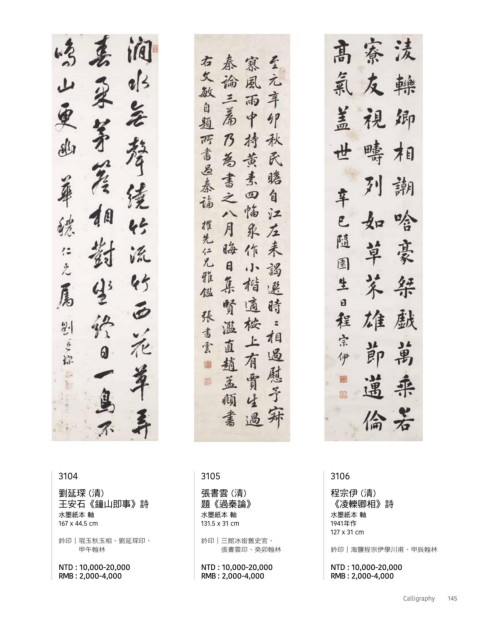 澗水無聲繞竹流竹西花草弄
春柔茅簷相對坐終日一鳥不
鳴山更幽 華穠仁兄屬 劉延琛
至元辛卯秋民瞻自江左來謁選時〻相過慰予寂
寥風雨中持黃素四幅求作小楷適桉上有賈生過
秦論三篇乃為書之八月晦日集賢濫直趙孟頫書
右文敏自題所書過秦論 擢先仁兄雅鑑 張書雲
淩轢卿相謿哈豪桀戲萬乘若
寮友視疇列如草芥雄節邁倫
高氣蓋世 辛巳隨園生日程宗伊
3104
劉延琛 (清)
王安石《鐘山即事》詩
水墨紙本 軸
167 x 44.5 cm
鈐印｜琨玉秋玉相、劉延琛印、
甲午翰林
NTD : 10,000-20,000
RMB : 2,000-4,000
3105
張書雲 (清)
題《過秦論》
水墨紙本 軸
131.5 x 31 cm
鈐印｜三館冰銜舊史官、
張書雲印、癸卯翰林
NTD : 10,000-20,000
RMB : 2,000-4,000
3106
程宗伊 (清)
《凌轢卿相》詩
水墨紙本 軸
1941年作
127 x 31 cm
鈐印｜海鹽程宗伊學川甫、甲辰翰林
NTD : 10,000-20,000
RMB : 2,000-4,000
Calligraphy 145